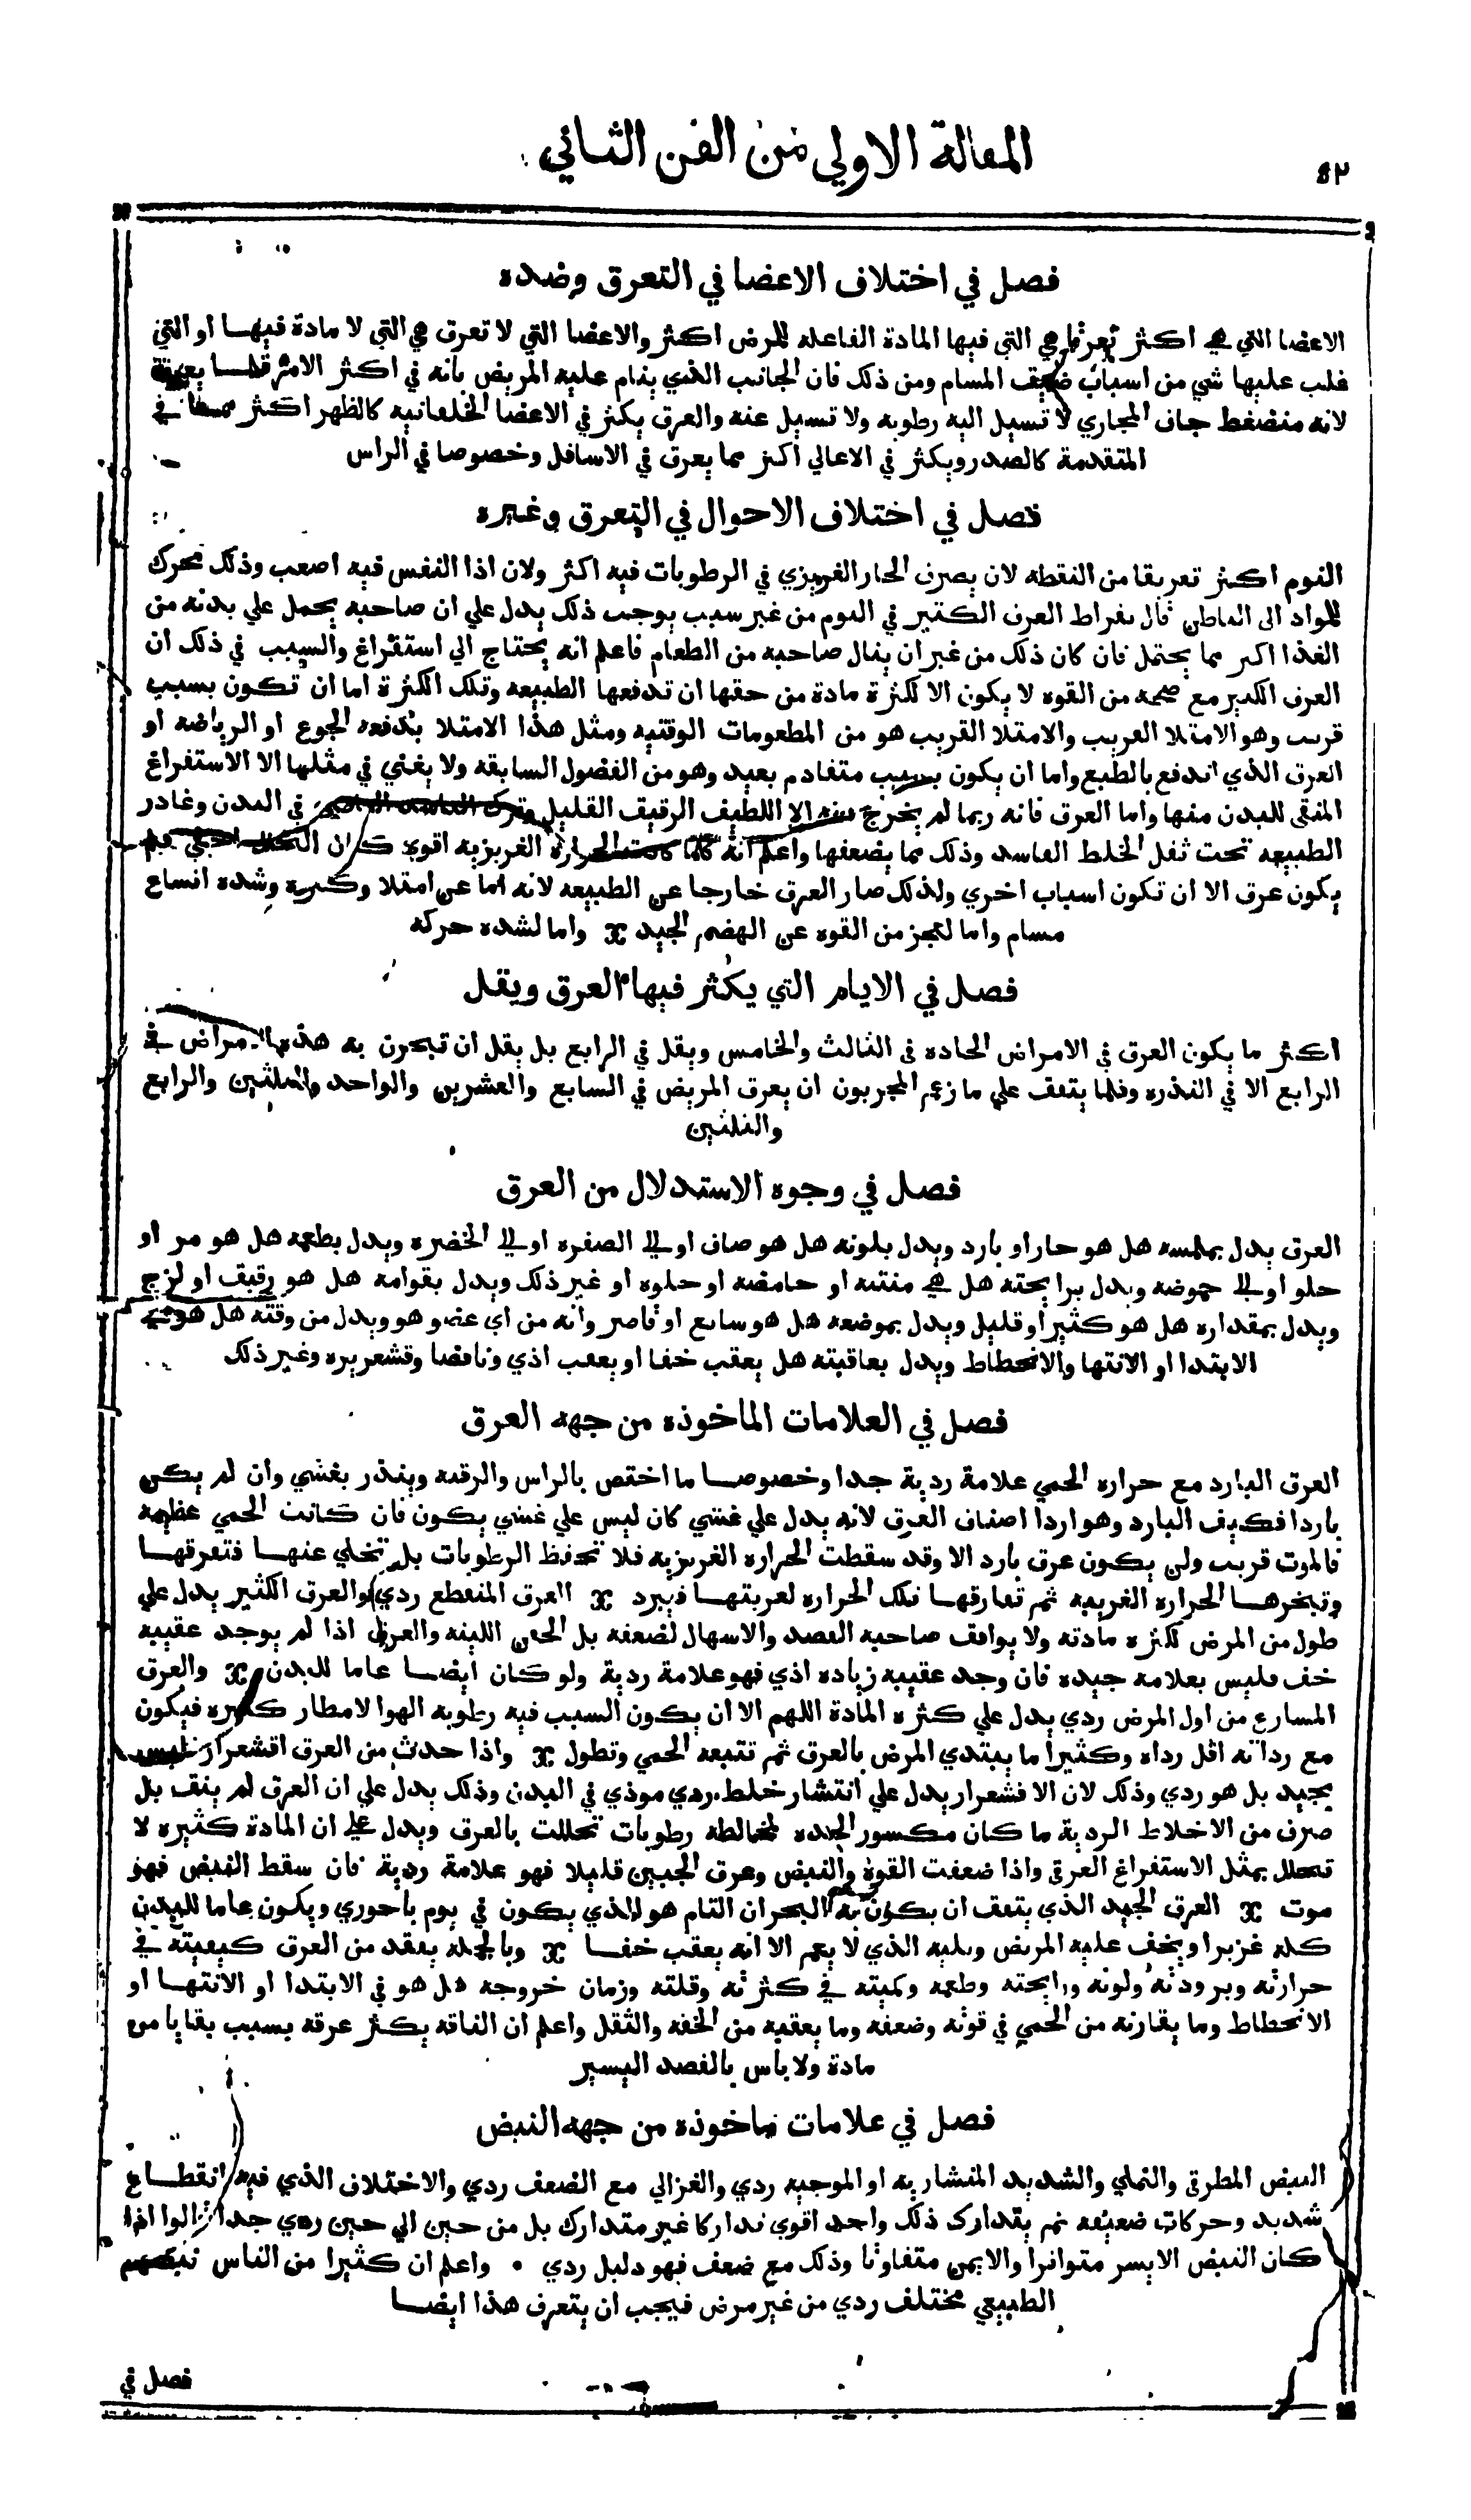 المقالة الاولي من الفن الثاني
٤٢
فصل في اختلاف الاعضا في التعرق وضده
الاعضا التي هي اكثر تعرقا هي التي فيها المادة الفاعله للمرض اكثر والاعضا التي لا تعرق هي التي لا مادة فيها او التي
غلب عليها شي من اسباب ضيف المسام ومن ذلك فان الجانب الذي ينام عليه المريض بانه في اكثر الامر قلما يعرق
لانه منضغط جاف المجاري لا تسيل اليه رطوبه ولا تسيل عنه والعرق يكثر في الاعضا الخلفانيه كالظهر اكثر مما في
المتقدمة كالصدر ويكثر في الاعالي اكثر مما يعرق في الاسافل وخصوصا في الراس
فصل في اختلاف الاحوال في التعرق وغيره
النوم اكثر تعريقا من اليقظه لان يصرف الحار الغريزي في الرطوبات فيه اكثر ولان اذا النفس فيه اصعب وذلك محرك
للمواد الى الباطن قال بقراط العرق الكثير في النوم من غير سبب يوجب ذلك يدل علي ان صاحبه يحمل علي بدنه من
الغذا اكبر مما يحتمل فان كان ذلك من غير ان ينال صاحبه من الطعام فاعلم انه يحتاج الي استفراغ والسبب في ذلك ان
العرق الكثير مع صحه من القوه لا يكون الا لكثرة مادة من حقها ان تدفعها الطبيعه وتلك الكثرة اما ان تكون بسبب
قريب وهو الامتلا القريب والامتلا القريب هو من المطعومات الوقتيه ومثل هذا الامتلا يدفعه الجوع او الرياضه او
العرق الذي اندفع بالطبع واما ان يكون بسبب متقادم بعيد وهو من الفضول السابقه ولا يغني في مثلها الا الاستفراغ
المنقي للبدن منها واما العرق فانه ربما لم يخرج منه الا اللطيف الرقيق القليل وترك في البدن وغادر
الطبيعه تحت ثقل الخلط الفاسد وذلك مما يضعفها واعلم انه كلما كانت الحراره الغريزيه اقوي كان فلم
يكون عرق الا ان تكون اسباب اخري ولذلك صار العرق خارجا عن الطبيعه لانه اما عن امتلا وكثره وشده اتساع
مسام واما لعجز من القوه عن الهضم الجيد ※ واما لشده حركه
فصل في الايام التي يكثر فيها العرق ويقل
اكثر ما يكون العرق في الامراض الحاده في الثالث والخامس ويقل في الرابع بل يقل ان تبحرن به هذه الامراض في
الرابع الا في الندره وقلما يتفق علي ما زعم المجربون ان يعرق المريض في السابع والعشرين والواحد والثلثين والرابع
والثلثين
فصل في وجوه الاستدلال من العرق
العرق يدل بملمسه هل هو حار او بارد ويدل بلونه هل هو صاف او الي الصفره او الي الخضره ويدل بطعمه هل هو مر او
حلو او الي حموضه ويدل برايحته هل هي منتنه او حامضه او حلوه او غير ذلك ويدل بقوامه هل هو رقيق او لزج
ويدل بمقداره هل هو كثير او قليل ويدل بموضعه هل هو سابع او قاصر وانه من اي عضو هو ويدل من وقته هل هو في
الابتدا او الانتها والانحطاط ويدل بعاقبته هل يعقب خفا او يعقب اذي ونافضا وقشعريره وغير ذلك
فصل في العلامات الماخوذه من جهه العرق
العرق البارد مع حراره الحمي علامة ردية جدا وخصوصا ما اختص بالراس والرقبه وينذر بغشي وان لم يكن
باردا فكيف البارد وهو اردا اصناف العرق لانه يدل علي غشي كان ليس علي غشي يكون فان كانت الحمي عظيمه
فالموت قريب ولن يكون عرق بارد الا وقد سقطت الحراره الغريزيه فلا تحفظ الرطوبات بل تخلي عنها فتعرقها
وتبخرها الحراره الغريبه ثم تفارقها تلك الحراره لغربتها فيبرد ※ العرق المنقطع ردي والعرق الكثير يدل علي
طول من المرض لكثره مادته ولا يوافق صاحبه الفصد والاسهال لضعفه بل الحقن اللينه والعرق اذا لم يوجد عقيبه
خف فليس بعلامه جيده فان وجد عقيبه زياده اذي فهو علامة ردية ولو كان ايضا عاما للبدن ※ والعرق
المسارع من اول المرض ردي يدل علي كثره المادة اللهم الا ان يكون السبب فيه رطوبه الهوا لامطار كثيره فيكون
مع رداته اقل رداه وكثيرا ما يبتدي المرض بالعرق ثم تتبعه الحمي وتطول ※ واذا حدث من العرق اقشعرار فليس
بجيد بل هو ردي وذلك لان الاقشعرار يدل علي انتشار خلط ردي موذي في البدن وذلك يدل علي ان العرق لم ينق بل
صرف من الاخلاط الردية ما كان مكسور الحده لمخالطه رطوبات تحللت بالعرق ويدل علي ان المادة كثيره لا
تتحلل بمثل الاستفراغ العرقي واذا ضعفت القوه والنبض وعرق الجبين قليلا فهو علامة ردية فان سقط النبض فهو
موت ※ العرق الجيد الذي يتفق ان يكون به البحران التام هو الذي يكون في يوم باحوري ويكون عاما للبدن
كله غزيرا ويخف عليه المريض ويليه الذي لا يعم الا انه يعقب خفا ※ وبالجمله يفقد من العرق كيفيته في
حرارته وبرودته ولونه ورايحته وطعمه وكميته في كثرته وقلته وزمان خروجه هل هو في الابتدا او الانتها او
الانحطاط وما يقارنه من الحمي في قوته وضعفه وما يعقبه من الخفه والثقل واعلم ان الناقه يكثر عرقه بسبب بقايا من
مادة ولا باس بالفصد اليسير
فصل في علامات ماخوذه من جهه النبض
النبض المطرقي والنملي والشديد المنشاريه او الموجيه ردي والغزالي مع الضعف ردي والاختلاف الذي فيه انقطاع
شديد وحركات ضعيفه ثم يتدارك ذلك واحد اقوي تداركا غير متدارك بل من حين الي حين ردي جدا قالوا اذا
كان النبض الايسر متواترا والايمن متفاوتا وذلك مع ضعف فهو دليل ردي • واعلم ان كثيرا من الناس نبضهم
الطبيعي مختلف ردي من غير مرض فيجب ان يتعرف هذا ايضا
فصل في